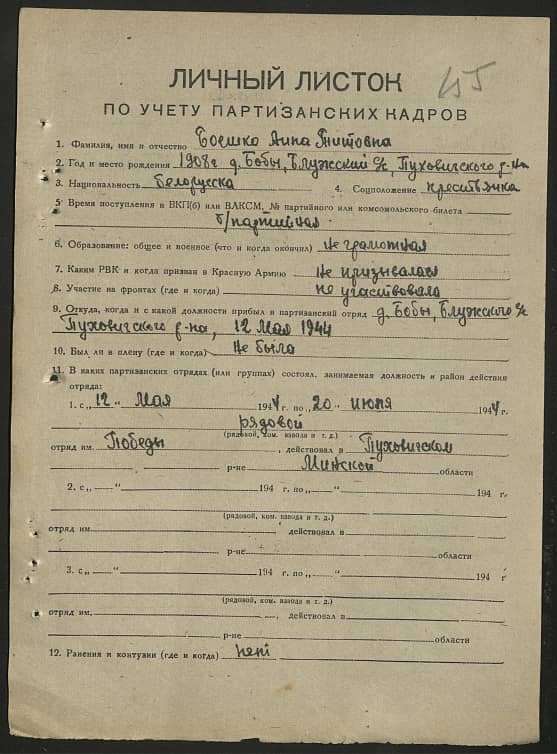 45
ЛИЧНЫЙ ЛИСТОК
ПО УЧЕТУ ПАРТИЗАНСКИХ КАДРОВ
1. Фамилия, имя и отчество Боешко Анна Титовна
2. Год и место рождения 1908г д. Бобы, Блужский с/с, Пуховичского р-на
3. Национальность белорусска 4. Соцположение крестьянка
5. Время поступления в ВКП(б) или ВЛКСМ, № партийного или комсомольского билета
б/партийная
6. Образование: общее и военное (что и когда окончил) не грамотная
7. Каким РВК и когда призван в Красную Армию не призывалася
8. Участие на фронтах (где и когда) не участвовала
9. Откуда, когда и с какой должности прибыл в партизанский отряд д. Бобы, Блужского с/с
Пуховичского р-на, 12 мая 1944
10. Был ли в плену (где и когда) не была
11. В каких партизанских отрядах (или группах) состоял, занимаемая должность и район действия
отряда:
1. с „12“ мая 1944 г. по „20“ июля 1944 г.
рядовой
(рядовой, ком. взвода и т. д.)
отряд им. Победы, действовал в Пуховичском
р-не Минской области
2. с „ “ 194 г. по „ “ 194 г.
(рядовой, ком. взвода и т. д.)
отряд им. действовал в
р-не области
3. с „ “ 194 г. по „ “ 194 г
(рядовой, ком. взвода и т. д.)
отряд им. , действовал в
р-не области
12. Ранения и контузии (где и когда) нет